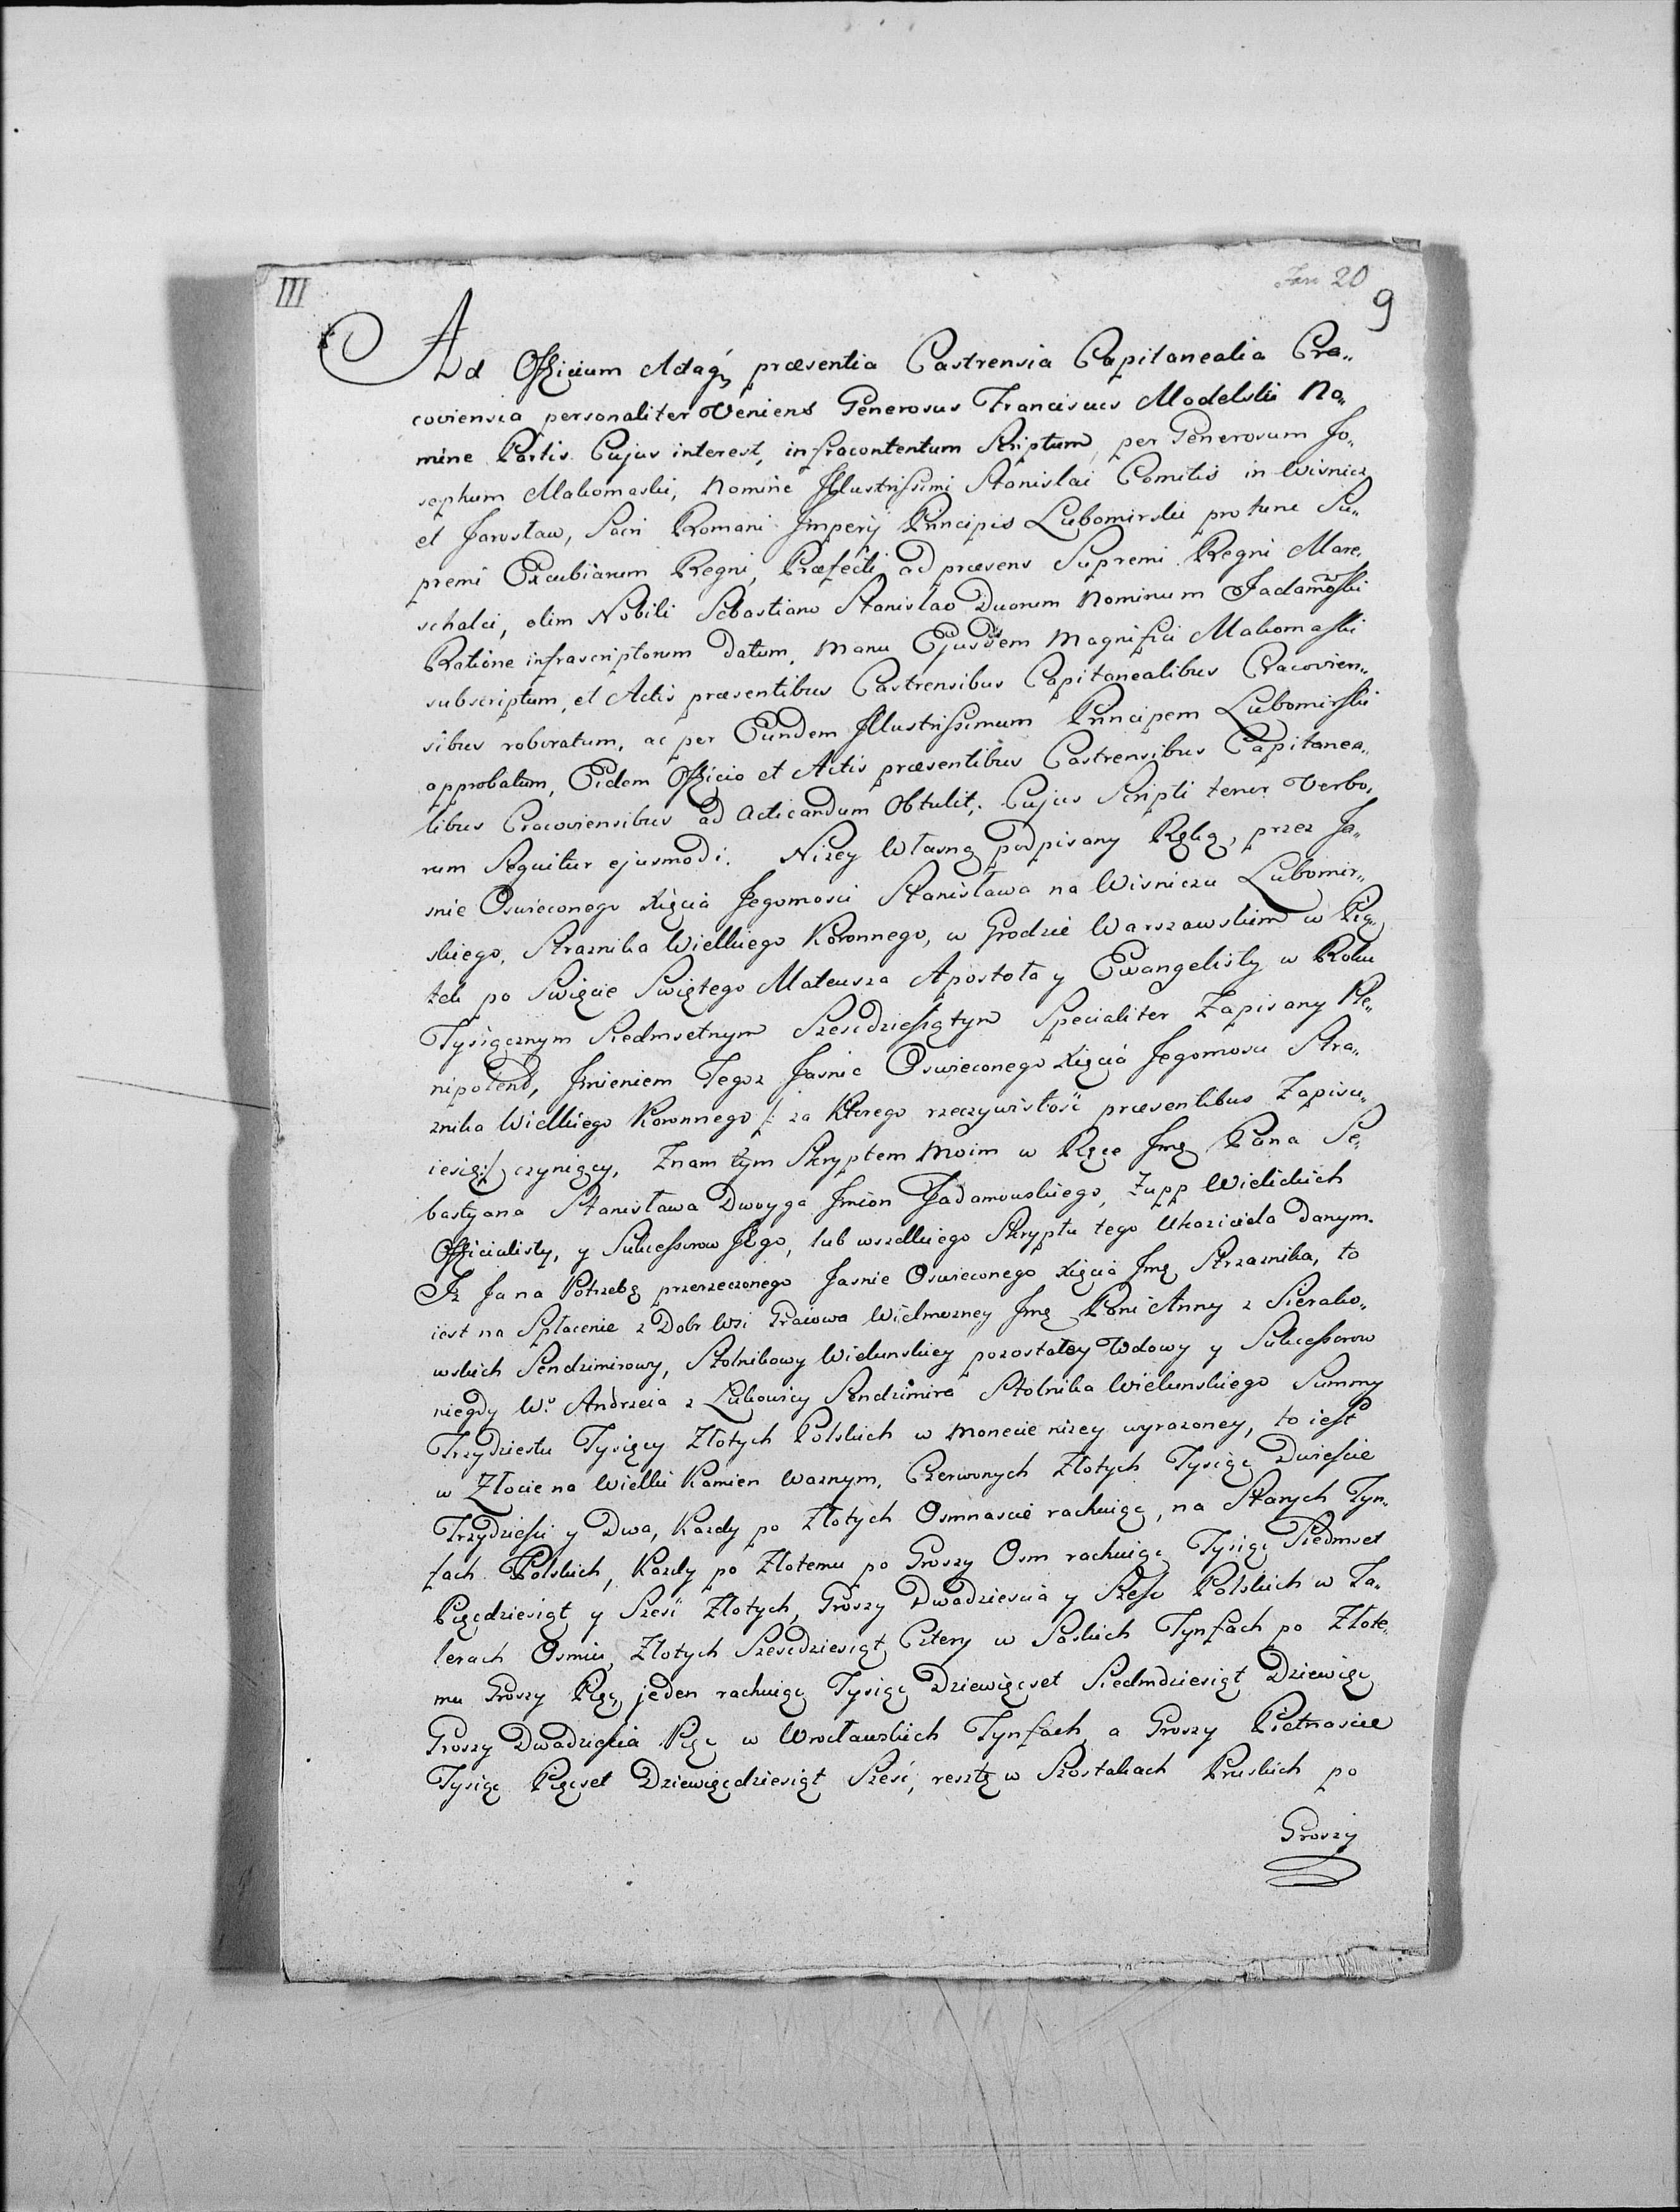 III
Jan 20
9
Ad Officium Actaq, præsentia Castrensia Capitanealia Cra„
coviensia personaliter Veniens Generosus Franciscus Modelski No„
mine Partis Cujus interest, infracontentum Scriptum, per Generosum Jo„
sephum Makomaski, Nomine Illustrissimi Stanislai Comitis in Wisnicz
et Jarosław, Sacri Romani Imperij Principis Lubomirski protunc Su„
premi Excubiarum Regni, Præfecti, ad præsens Supremi Regni Mare„
schalci, olim Nobili Sebastiano Stanislao Duorum Nominum Jadamowski
Ratione infrascriptorum Datum, Manu Ejusdem Magnifici Makomaski
subscriptum, et Actis præsentibus Castrensibus Capitanealibus Cracovien„
sibus roboratum, ac per Eundem Illustrissimum Principem Lubomirski
approbatum, Eidem Officio et Actis præsentibus Castrensibus Capitanea„
libus Cracoviensibus ad acticandum Obtulit, Cujus Scripti tenor Verbo„
rum Sequitur ejusmodi. Nizey Własną podpisany Ręką, przez Ja„
snie Oswieconego Xięcia Jegomosci Stanisława na Wisniczu Lubomir„
skiego, Straznika Wielkiego Koronnego, w Grodzie Warszawskim w Pią„
tek po Swięcie Swiętego Mateusza Apostoła y Ewangelisty w Roku
Tysiącznym Siedmsetnym Szescdziesiątym Specialiter Zapisany Ple„
nipotent, Imieniem Tegoz Jasnie Oswieconego Xięcia Jegomosci Stra„
znika Wielkiego Koronnego /: za Ktorego rzeczywistość præsentibus Zapisu„
iesię:/ czyniący, Znam tym Skryptem Moim w Ręce Jmę Pana Se„
bastyana Stanisława Dwoyga Imion Jadamowskiego, Zupp Wielickich
Officialisty, y Sukcessorow Jego, lub wszelkiego Skryptu tego Ukaziciela danym.
Iz Ja na Potrzebę przerzeczonego Jasnie Oswieconego Xięcia Jmę Strzaznika, to
iest na Spłacenie z Dobr Wsi Graiowa Wielmozney Jmę Pani Anny z Sierako„
wskich Sendzimirowy, Stolnikowy Wielunskiey pozostałey Wdowy y Sukcessorow
niegdy W.º Andrzeia z Lukowicy Sendzimira Stolnika Wielunskiego Summy
Trzydziestu Tysięcy Złotych Polskich w Monecie nizey wyrazoney, to iest
w Złocie na Wielki Kamien Waznym, Czerwonych Złotych Tysiąc Dwiescie
Trzydziesci y Dwa, Kazdy po Złotych Osmnascie rachuiąc, na Starych Tyn„
fach Polskich, Kazdy po Złotemu po Groszy Osm rachuiąc Tysiąc Siedmset
Pięcdziesiąt y Szesć Złotych, Groszy Dwadziescia y Szesc Polskich w Ta„
lerach Osmiu, Złotych Szescdziesiąt Cztery w Saskich Tynfach po Złote„
mu Groszy Pięc, jeden rachuiąc Tysiąc Dziewięcset Siedmdziesiąt Dziewięc
Groszy Dwadziescia Pięc w Wrocławskich Tynfach, a Groszy Pietnascie
Tysiąc Pięcset Dziewięcdziesiąt Sześć, resztę w Szostakach Pruskich po
Groszy